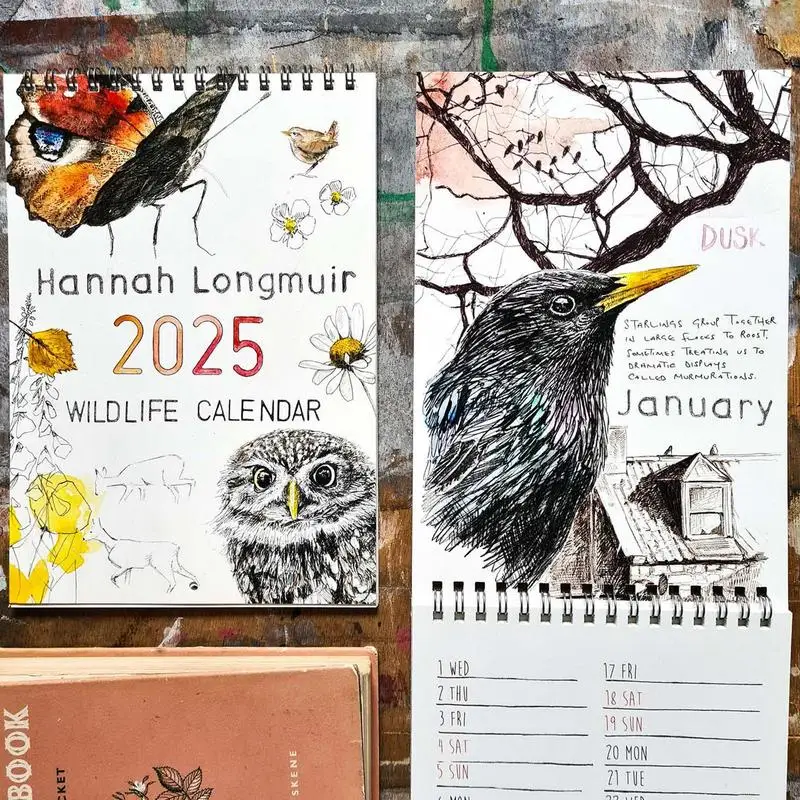 Hannah Longmuir
2025
WILDLIFE CALENDAR
DUSK.
STARLINGS GROUP TOGETHER
IN LARGE FLOCKS TO ROOST,
SOMETIMES TREATING US TO
DRAMATIC DISPLAYS
CALLED MURMURATIONS.
January
1 WED
2 THU
3 FRI
4 SAT
5 SUN
17 FRI
18 SAT
19 SUN
20 MON
21 TUE
BOOK
CKET
SKENE